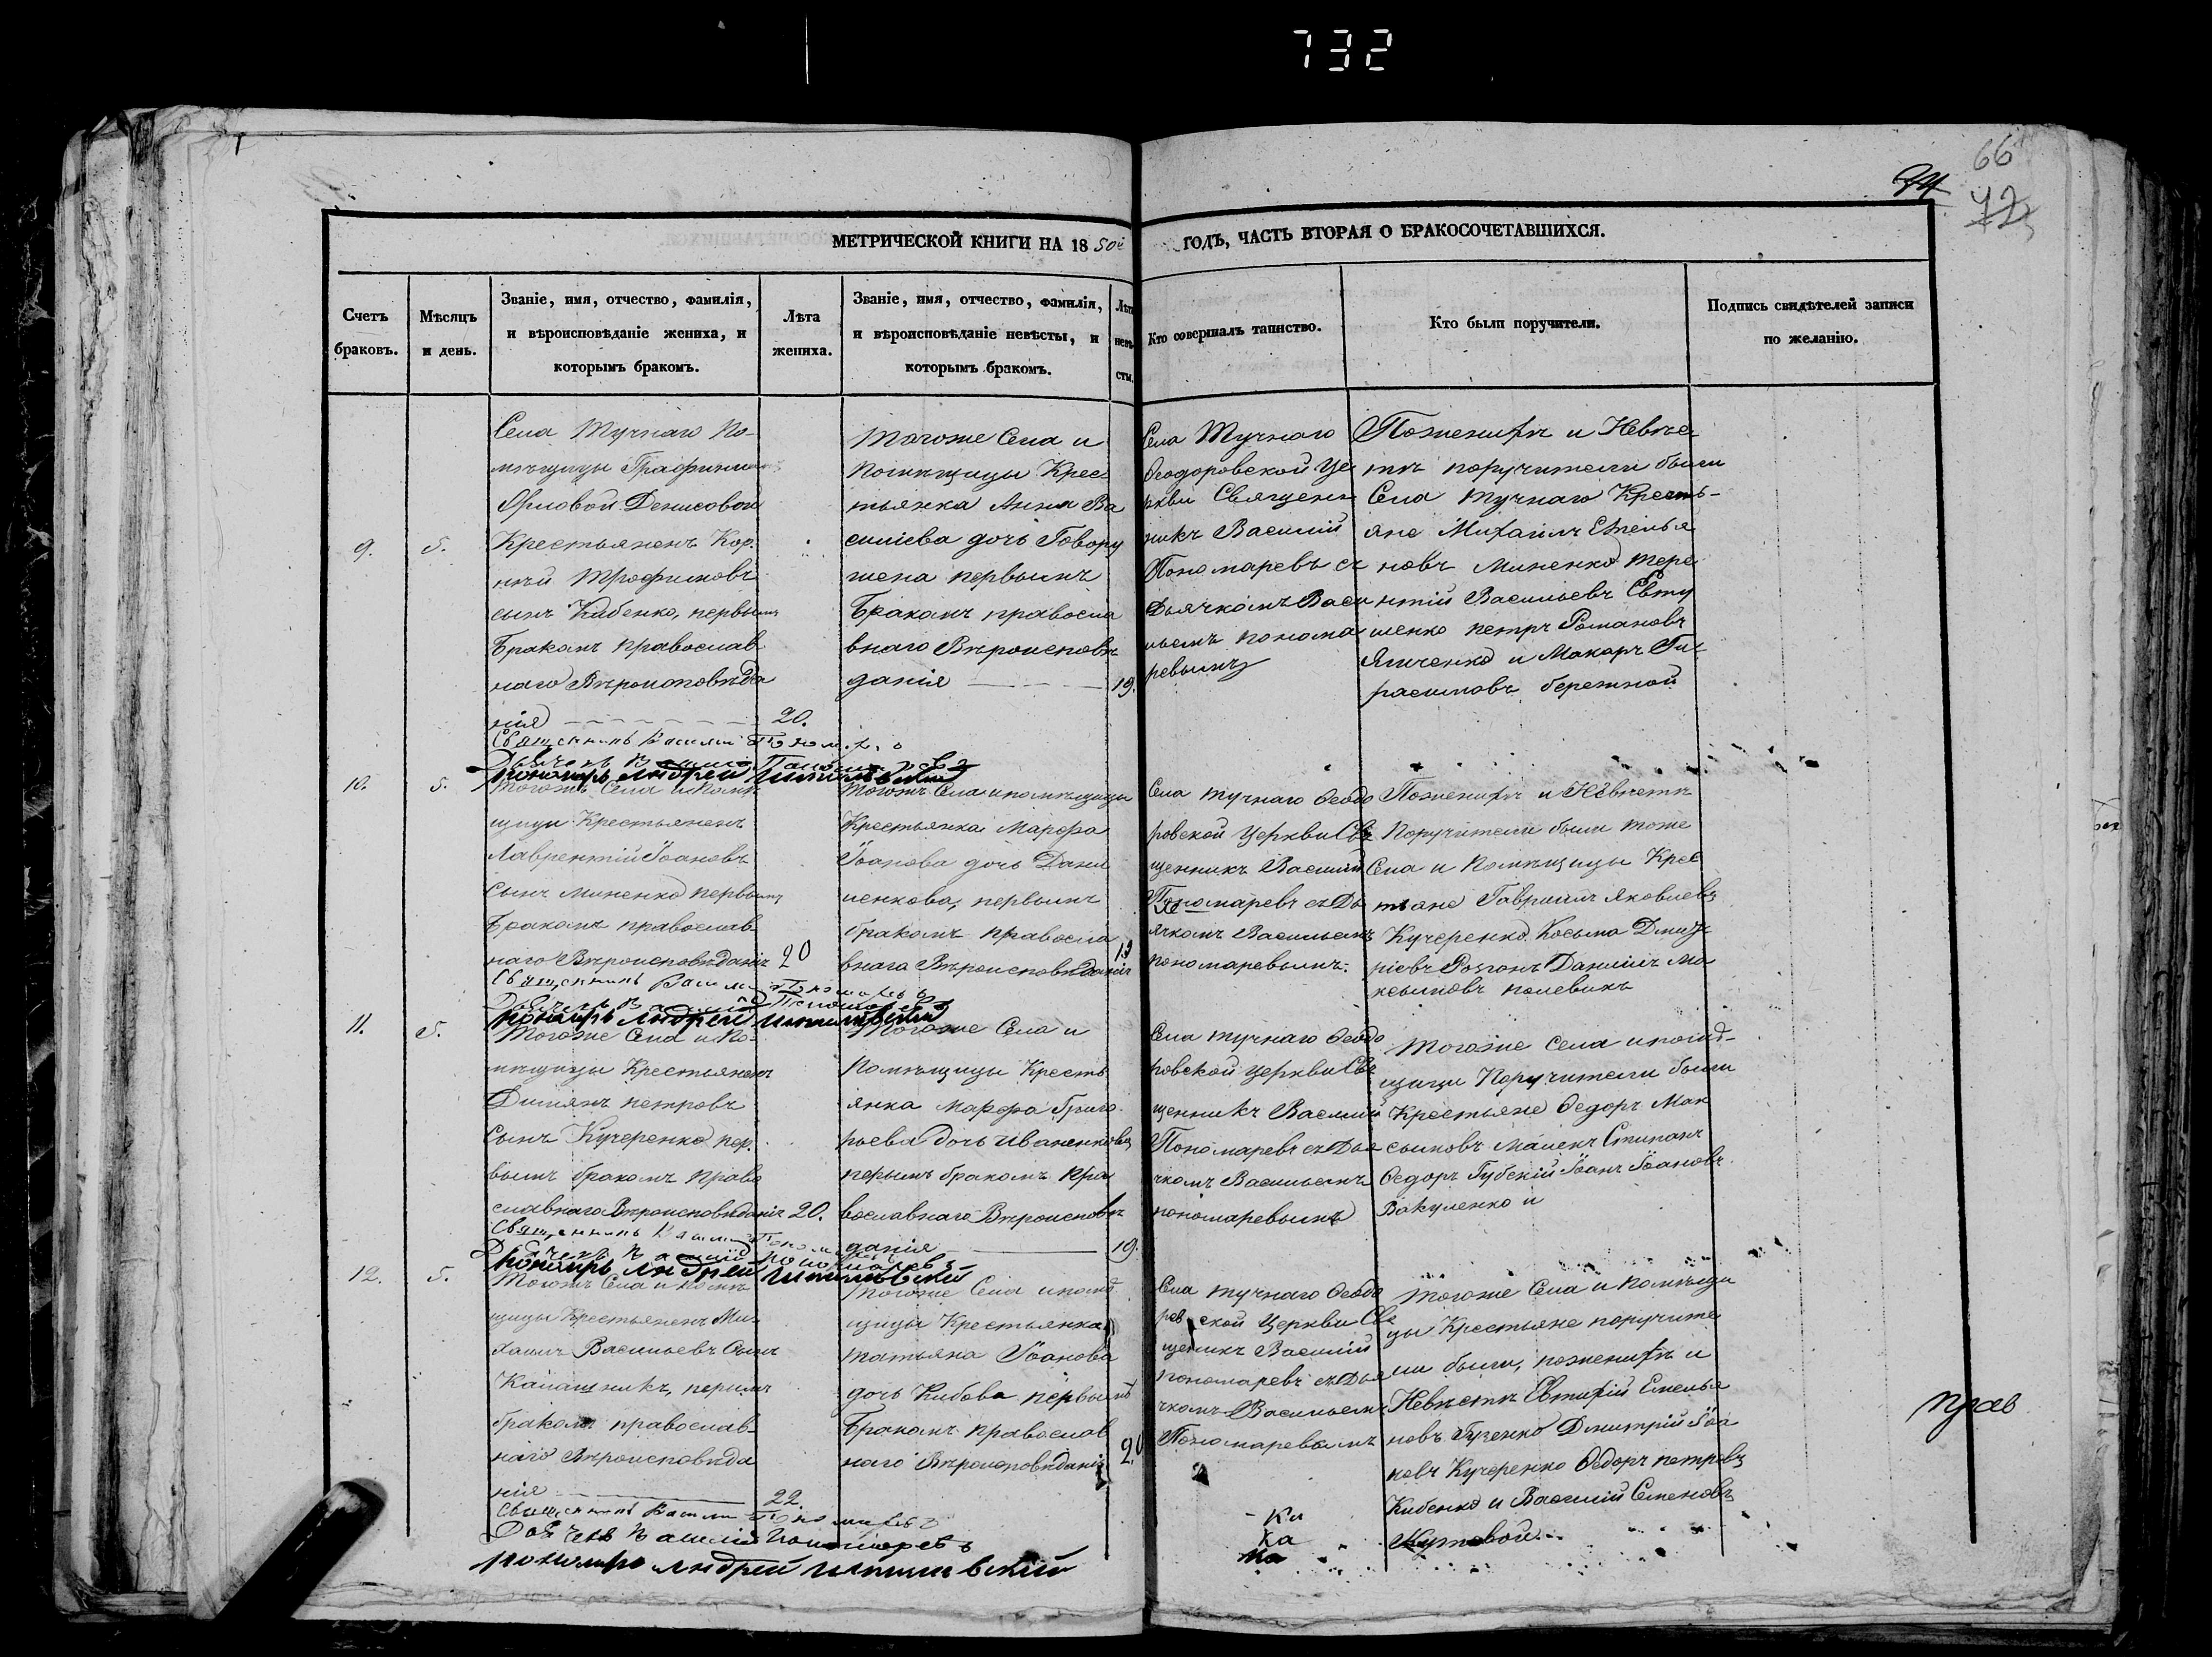 732
66
МЕТРИЧЕСКОЙ КНИГИ НА 1850й
ГОДЪ, ЧАСТЬ ВТОРАЯ О БРАКОСОЧЕТАВШИХСЯ.
Счетъ
браковъ.
Мѣсяцъ
и день.
Званіе, имя, отчество, фамилія,
и вѣроисповѣданіе жениха, и
которымъ бракомъ.
Лѣта
жениха.
Званіе, имя, отчество, фамилія,
и вѣроисповѣданіе невѣсты, и
которымъ бракомъ.
Лѣта
невѣ-
сты.
Кто совершалъ таинство.
Кто были поручители.
Подпись свидѣтелей записи
по желанію.
9.
5.
Села Тучнаго По-
мѣщицы Графини
Орловой Денисовой
Крестьяненъ Кор.
нѣй Трофимовъ
сынъ Кибенко, первымъ
Бракомъ православ
наго Вѣроисповѣда
нія
20.
Священникъ Василий Пономаревъ
Дьячекъ Василий Пономаревъ
пономарь Андрей
Тогоже Села и
Помѣщицы Крес
тьянка Анна Ва
силіева дочь Говору
шена первымъ
Бракомъ правосла
внаго Вѣроисповѣ
данія
19.
Села Тучнаго
Феодоровской Це
ркви Священ
никъ Василий
Пономаревъ съ
Дьячкомъ Васи
льемъ понома
ревымъ
Поженихѣ и Невѣс
тѣ поручители были
Села Тучнаго Кресть-
яне Михаилъ Емелья
новъ Миненко Тере
нтій Васильевъ Евту
шенко петръ Романовъ
Ятченко и Макаръ Ги
расимовъ бережной
10.
5.
Тогожъ Села и помѣ
щицы Крестьяненъ
Лаврентій Іоановъ
Сынъ Миненко первымъ
Бракомъ православ
наго Вѣроисповѣданія 20
Священникъ Василий Пономаревъ
Дьячекъ Василий Пономаревъ
пономарь Андрей
Тогожъ Села и помѣщицы
Крестьянка Марфа
Іоанова дочь Дани
ленкова, первымъ
бракомъ правосла
внаго Вѣроисповѣданія
19
Села тучнаго Феодо
ровской Церкви Свя
щенникъ Василий
Пономаревъ съ Дь
ячкомъ Васильемъ
пономаревымъ.
Поженихѣ и Невѣстѣ
Поручители были тоже
Села и Помѣщицы Крес
тьяне Гавриилъ Яковлевъ
Кучеренко Косьма Дмит
ріевъ Розгонъ Даниилъ Ма
ксимовъ полевикъ
11.
5.
Тогоже Села и По-
мѣщицы Крестьяненъ
Димянъ петровъ
Сынъ Кучеренко пер.
вымъ бракомъ право
славнаго Вѣроисповѣданія 20.
Священникъ Василий
Дьячекъ Василий пономаревъ
пономарь Андрей
Тогоже Села и
Помѣщицы Кресть
янка марфа Григо
рьева дочь Иваненкова
первымъ бракомъ пра
вославнаго Вѣроисповѣ
данія
19.
Села тучнаго Феодо
ровской Церкви Свя
щенникъ Василий
Пономаревъ съ Дья
чкомъ Васильемъ
пономаревымъ
Тогоже Села и помѣ-
щицы Поручители были
Крестьяне Федоръ Мак
симовъ Степанъ
Федоръ Губскій Іоанъ Іоановъ
Вакуленко и
12.
5.
Тогожъ Села и помѣ
щицы Крестьяненъ Ми-
хаилъ Васильевъ Сынъ
Калашникъ, первымъ
бракомъ православ-
наго Вѣроисповѣда
нія
22.
Священникъ Василий Пономаревъ
Дьячекъ Василий Пономаревъ
пономарь Андрей
Тогоже Села и помѣ
щицы Крестьянка
татьяна Іоанова
дочь Кибова первымъ
Бракомъ православ
наго Вѣроисповѣданія
20
Села тучнаго Феодо
ровской Церкви Свя
щеникъ Василий
пономаревъ съ Дья
чкомъ Васильемъ
Пономаревымъ
Тогоже Села и помѣщи
цы Крестьяне поручите
ли были, поженихѣ и
Невѣстѣ Евтихій Емелья
новъ Гузенко Дмитрій Іоа
новъ Кучеренко Федоръ петровъ
Кибенко и Василий Семеновъ
Кутовой
Ка
Ка